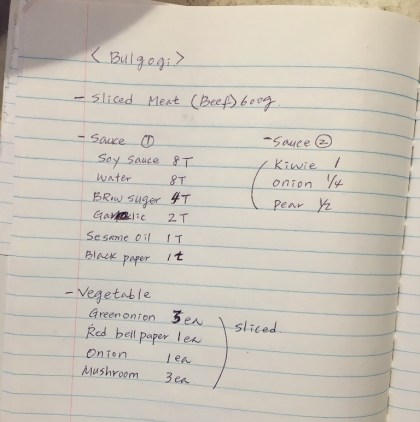 < Bulgogi >
- Sliced Meat (Beef) 600g
- Sauce ①
Soy Sauce 8T
water 8T
BRow suger 4T
Garlic 2T
Sesame oil 1T
Black paper 1t
- Sauce ②
Kiwie 1
onion 1/4
pear 1/2
- Vegetable
Greenonion 3ea
Red bell paper 1ea
Onion 1ea
Mushroom 3ea
sliced